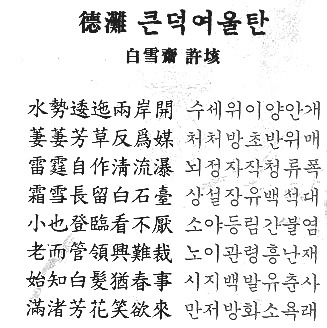 德灘 큰덕여울탄
白雪齋 許垓
水勢逶迤兩岸開 수세위이양안개
萋萋芳草反爲媒 처처방초반위매
雷霆自作淸流瀑 뇌정자작청류폭
霜雪長留白石臺 상설장유백석대
小也登臨看不厭 소야등림간불염
老而管領興難裁 노이관령흥난재
始知白髮猶春事 시지백발유춘사
滿渚芳花笑欲來 만저방화소욕래